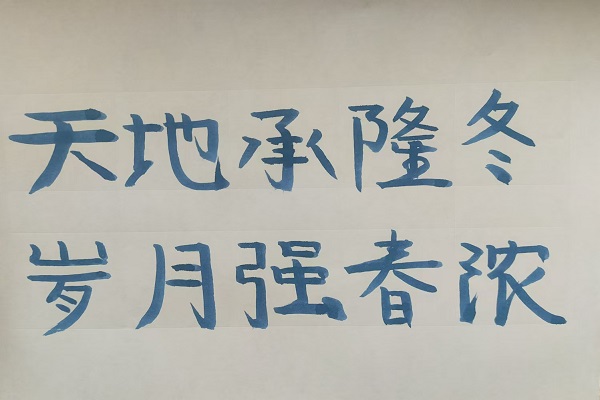 天地承隆冬
岁月强春浓